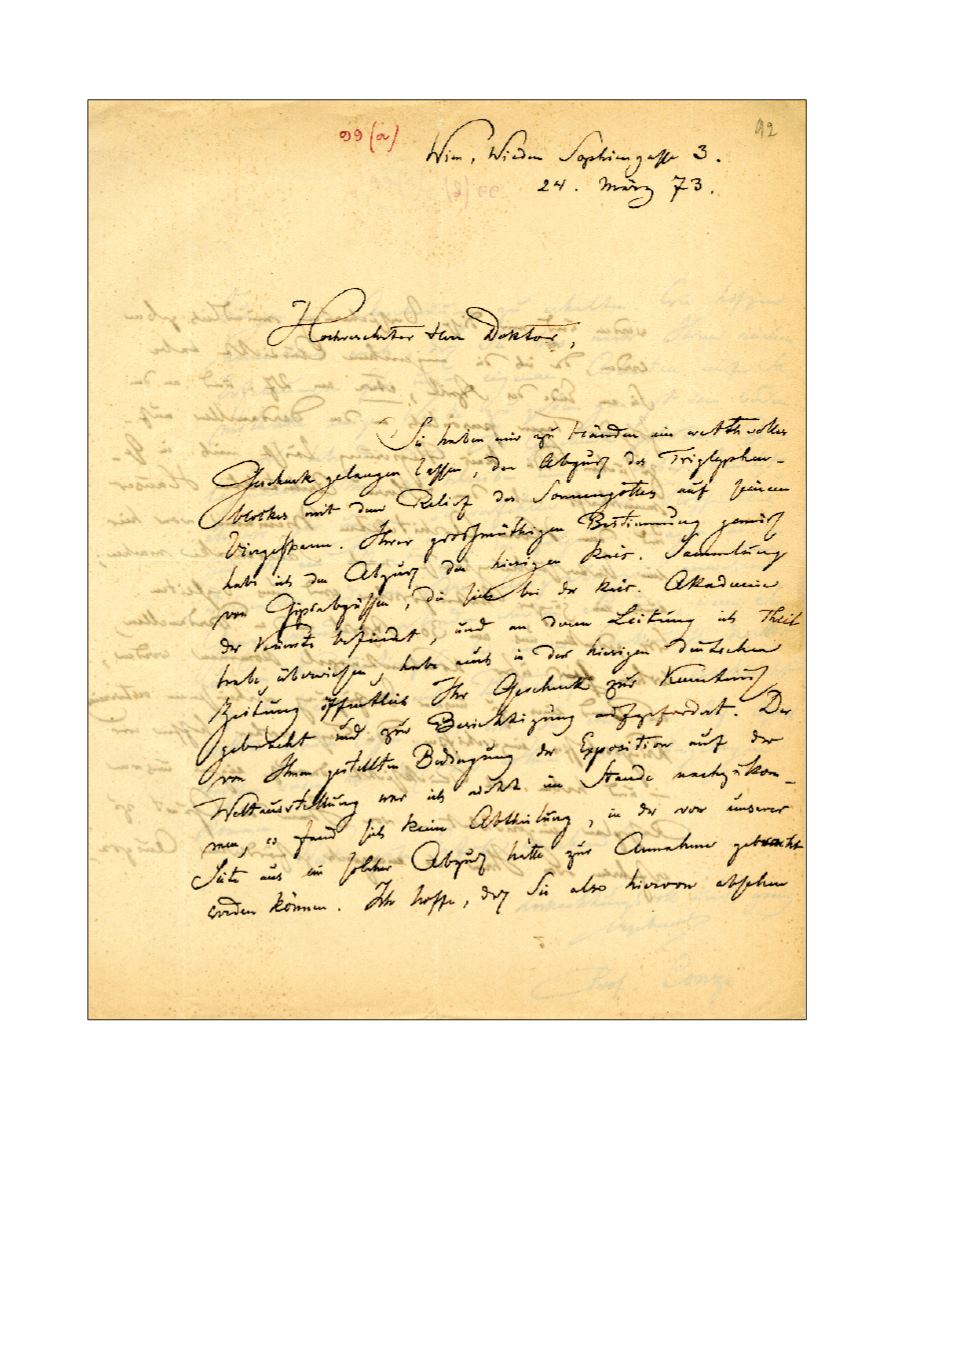 99 (a)
92
Wien, Wieden Sophiengasse 3.
24. März 73.
Hochverehrter Herr Doktor,
Sie haben mir zu Händen ein werthvolles
Geschenk gelangen lassen, den Abguß des Triglyphen-
blockes mit dem Relief des Sonnengottes auf seinem
Viergespann. Ihrer großmüthigen Bestimmung gemäß
habe ich den Abguß der hiesigen kais. Sammlung
von Gipsabgüssen, die sich bei der kais. Akademie
der Künste befindet, und an deren Leitung ich Theil
habe, überwiesen, habe auch in der hiesigen deutschen
Zeitung öffentlich Ihr Geschenk zur Kenntniß
gebracht und zur Besichtigung aufgefordert. Der
von Ihnen gestellten Bedingung der Exposition auf der
Weltausstellung war ich nicht im Stande nachzukom-
men, es fand sich keine Abtheilung, in der von unserer
Seite aus ein solcher Abguß hätte zur Annahme gebracht
werden können. Ich hoffe, daß Sie also hiervon absehen